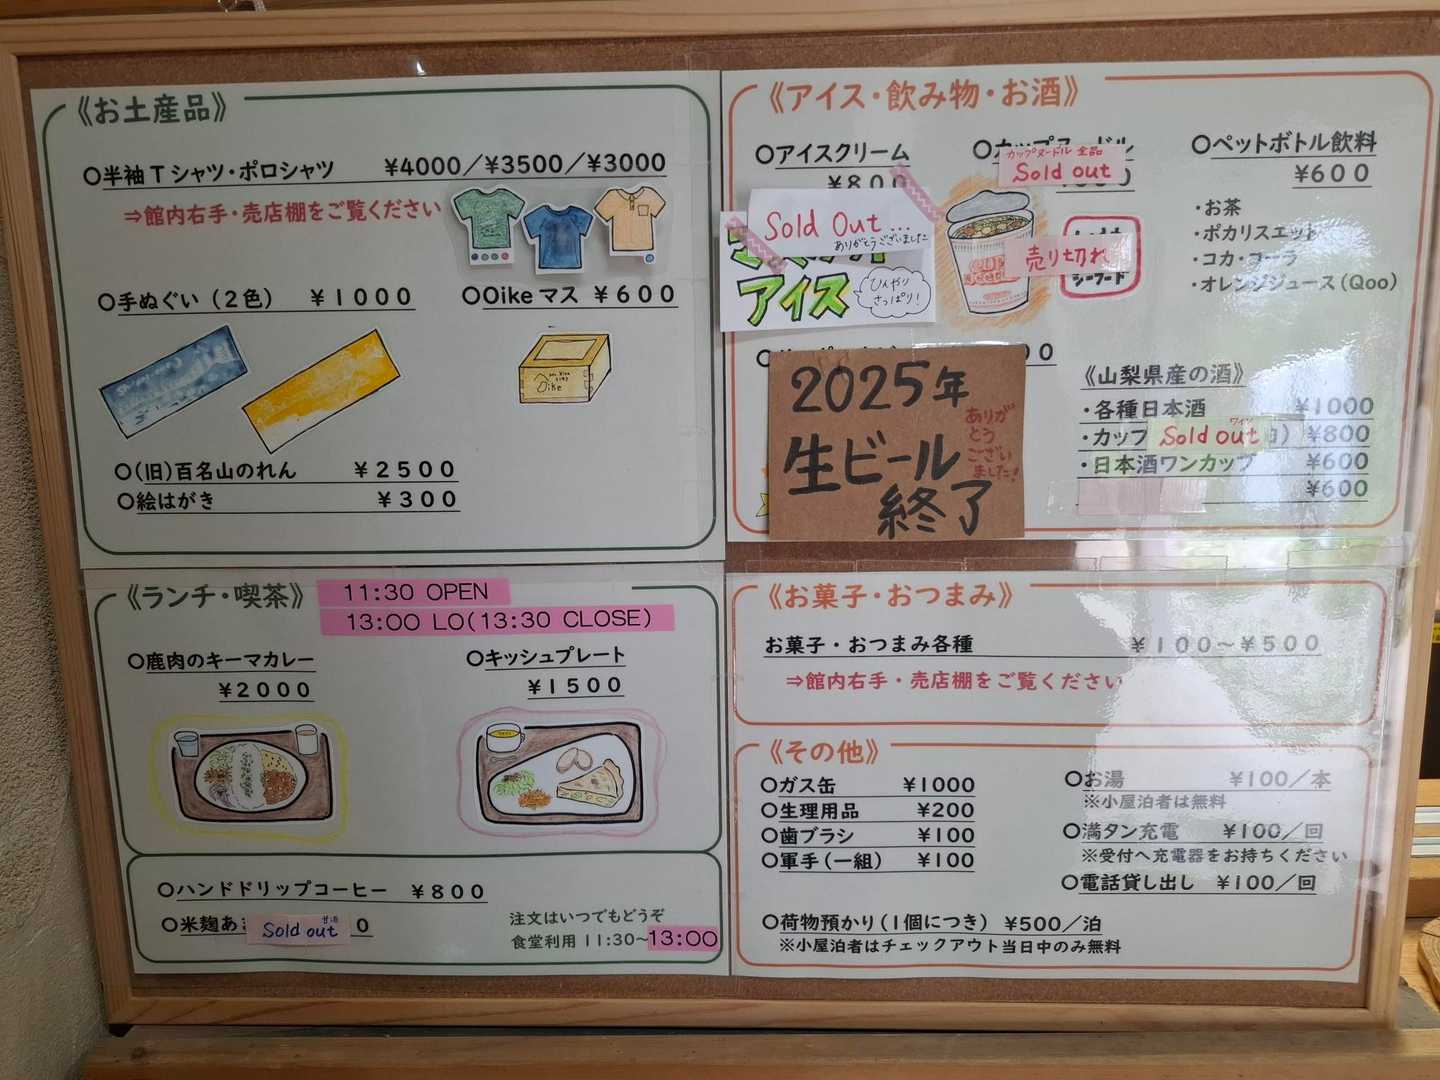 《お土産品》
○半袖Tシャツ・ポロシャツ ¥4000/¥3500/¥3000
⇒館内右手・売店棚をご覧ください
○手ぬぐい(2色) ¥1000
○Oikeマス ¥600
Oike
○(旧)百名山のれん ¥2500
○絵はがき ¥300
《アイス・飲み物・お酒》
○アイスクリーム
¥800
Sold Out...
ありがとうございました
アイス
ひんやり
さっぱり!
カップヌードル 全品
Sold out
売り切れ
シーフード
○ペットボトル飲料
¥600
・お茶
・ポカリスエット
・コカ・コーラ
・オレンジジュース(Qoo)
2025年
生ビール
終了
ありが
とう
ござい
ました!
《山梨県産の酒》
・各種日本酒 ¥1000
・カップ ワイン Sold out ¥800
・日本酒ワンカップ ¥600
¥600
《ランチ・喫茶》
11:30 OPEN
13:00 LO(13:30 CLOSE)
○鹿肉のキーマカレー
¥2000
○キッシュプレート
¥1500
○ハンドドリップコーヒー ¥800
○米麹あま 甘酒 Sold out 0
注文はいつでもどうぞ
食堂利用 11:30~13:00
《お菓子・おつまみ》
お菓子・おつまみ各種 ¥100~¥500
⇒館内右手・売店棚をご覧ください
《その他》
○ガス缶 ¥1000
○生理用品 ¥200
○歯ブラシ ¥100
○軍手(一組) ¥100
○お湯 ¥100/本
※小屋泊者は無料
○満タン充電 ¥100/回
※受付へ充電器をお持ちください
○電話貸し出し ¥100/回
○荷物預かり(1個につき) ¥500/泊
※小屋泊者はチェックアウト当日中のみ無料